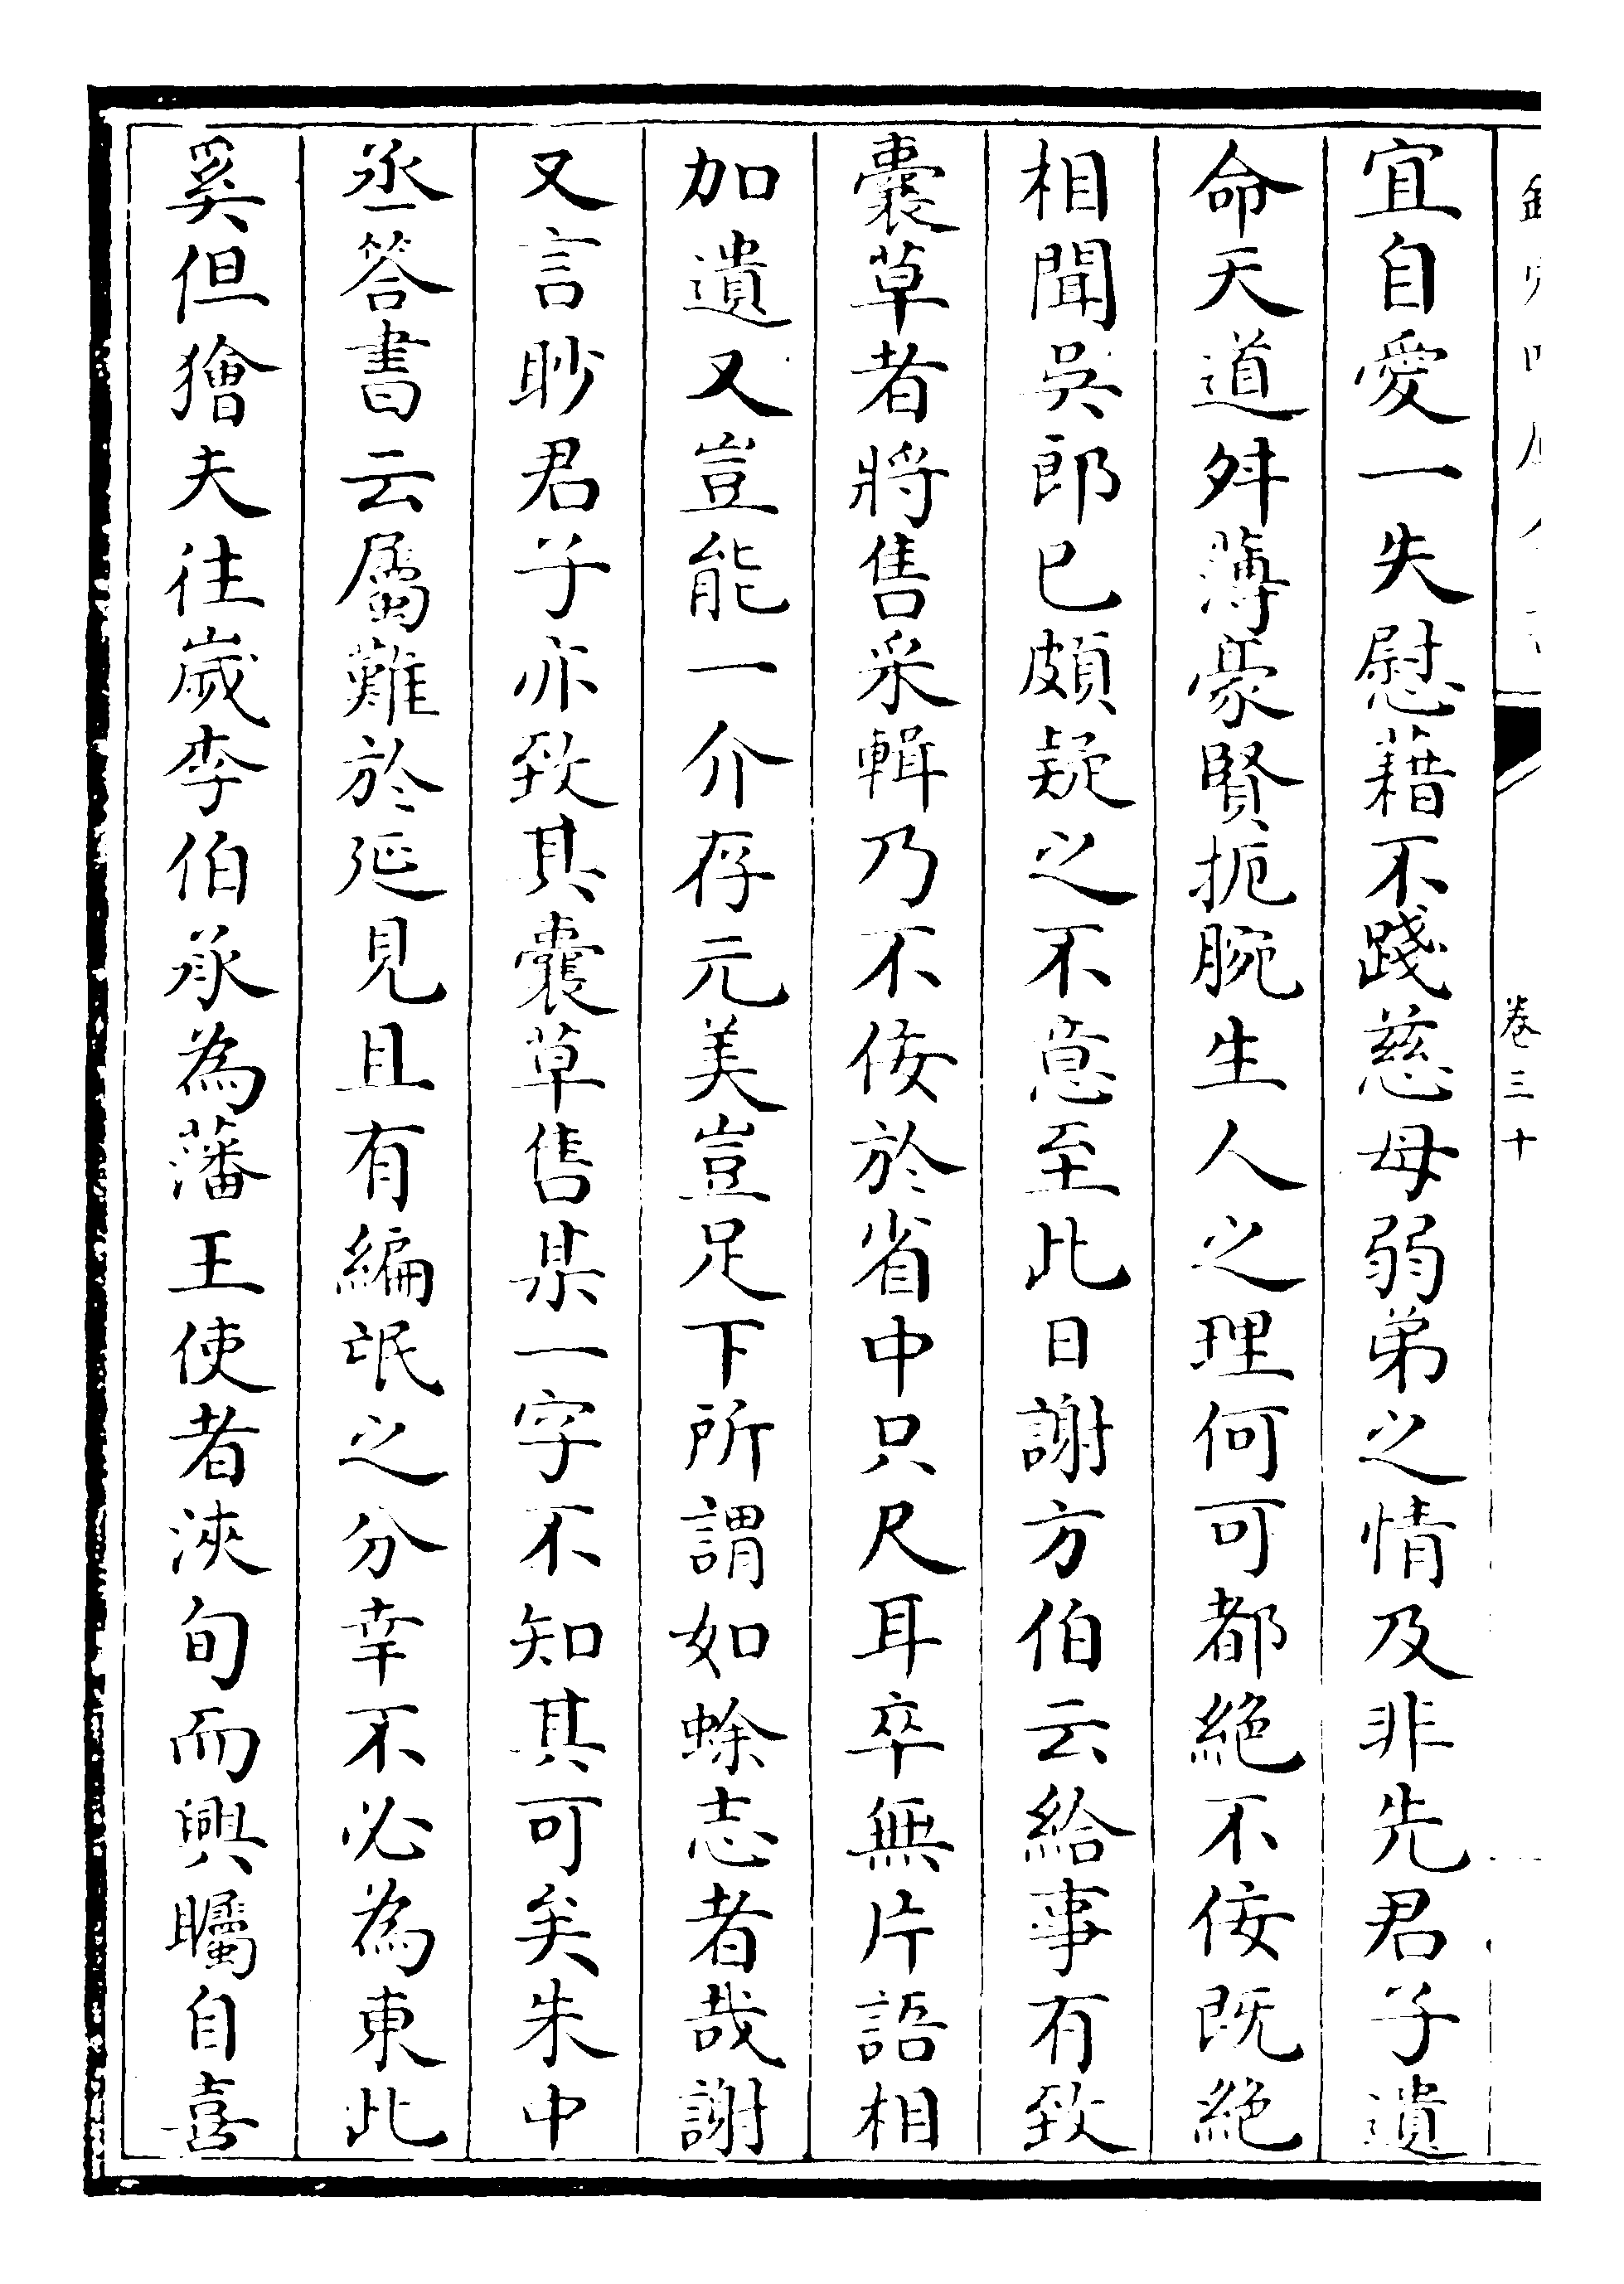 卷三十
宜自愛一失慰藉不踐慈母弱弟之情及非先君子遺
命天道舛薄豪賢扼腕生人之理何可都絶不佞既絶
相聞吳郎已頗疑之不意至此日謝方伯云給事有致
囊草者將售采輯乃不佞於省中只尺耳卒無片語相
加遺又豈能一介存元美豈足下所謂如蜍志者哉謝
又言眇君子亦致其囊草售某一字不知其可矣朱中
丞答書云屬難於延見且有編氓之分幸不必為東此
奚但獪夫往歲李伯承為藩王使者浹旬而興矚自喜